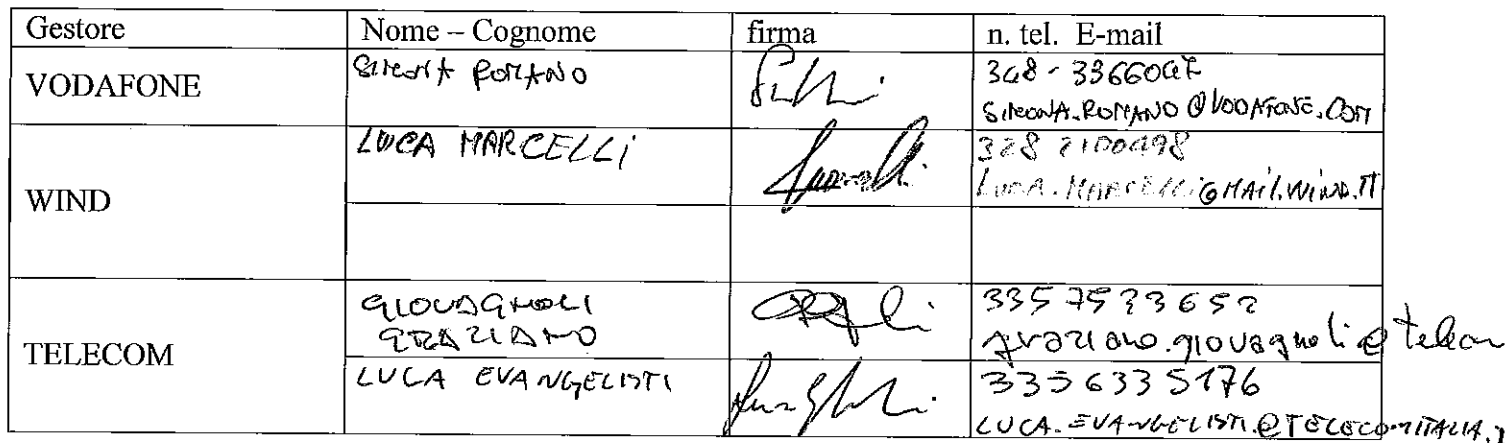 Gestore Nome – Cognome firma n. tel. E-mail
VODAFONE SIMONA ROMANO 348-3366047
SIMONA.ROMANO@VODAFONE.COM
WIND LUCA MARCELLI 328 2100498
LUCA.MARCELLI@MAIL.WIND.IT
TELECOM GIOVAGNOLI GRAZIANO 3357533652
graziano.giovagnoli@telecom
LUCA EVANGELISTI 3356335176
LUCA.EVANGELISTI@TELECOMITALIA.